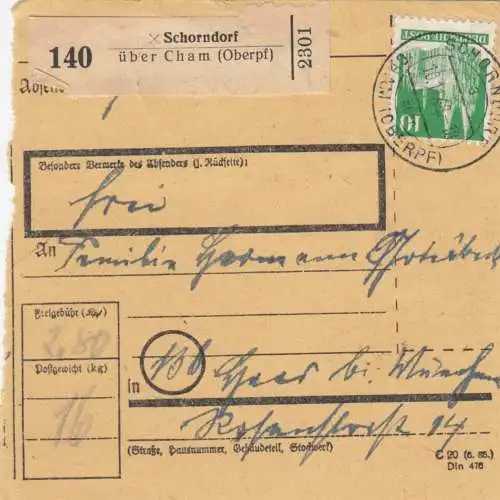 140
× Schorndorf
über Cham (Oberpf)
2301
DEUTSCHE POST
10
(OBERPF)
Absen
Besondere Vermerke des Absenders (s. Rückseite):
frei
An Familie Hermann
Freigebühr (Rpf)
2,80
Postgewicht (kg)
16
in 13b Haar bei München
Rosenstrasse 14
(Straße, Hausnummer, Gebäudeteil, Stockwerk)
C 20 (6. 85.)
Din 476